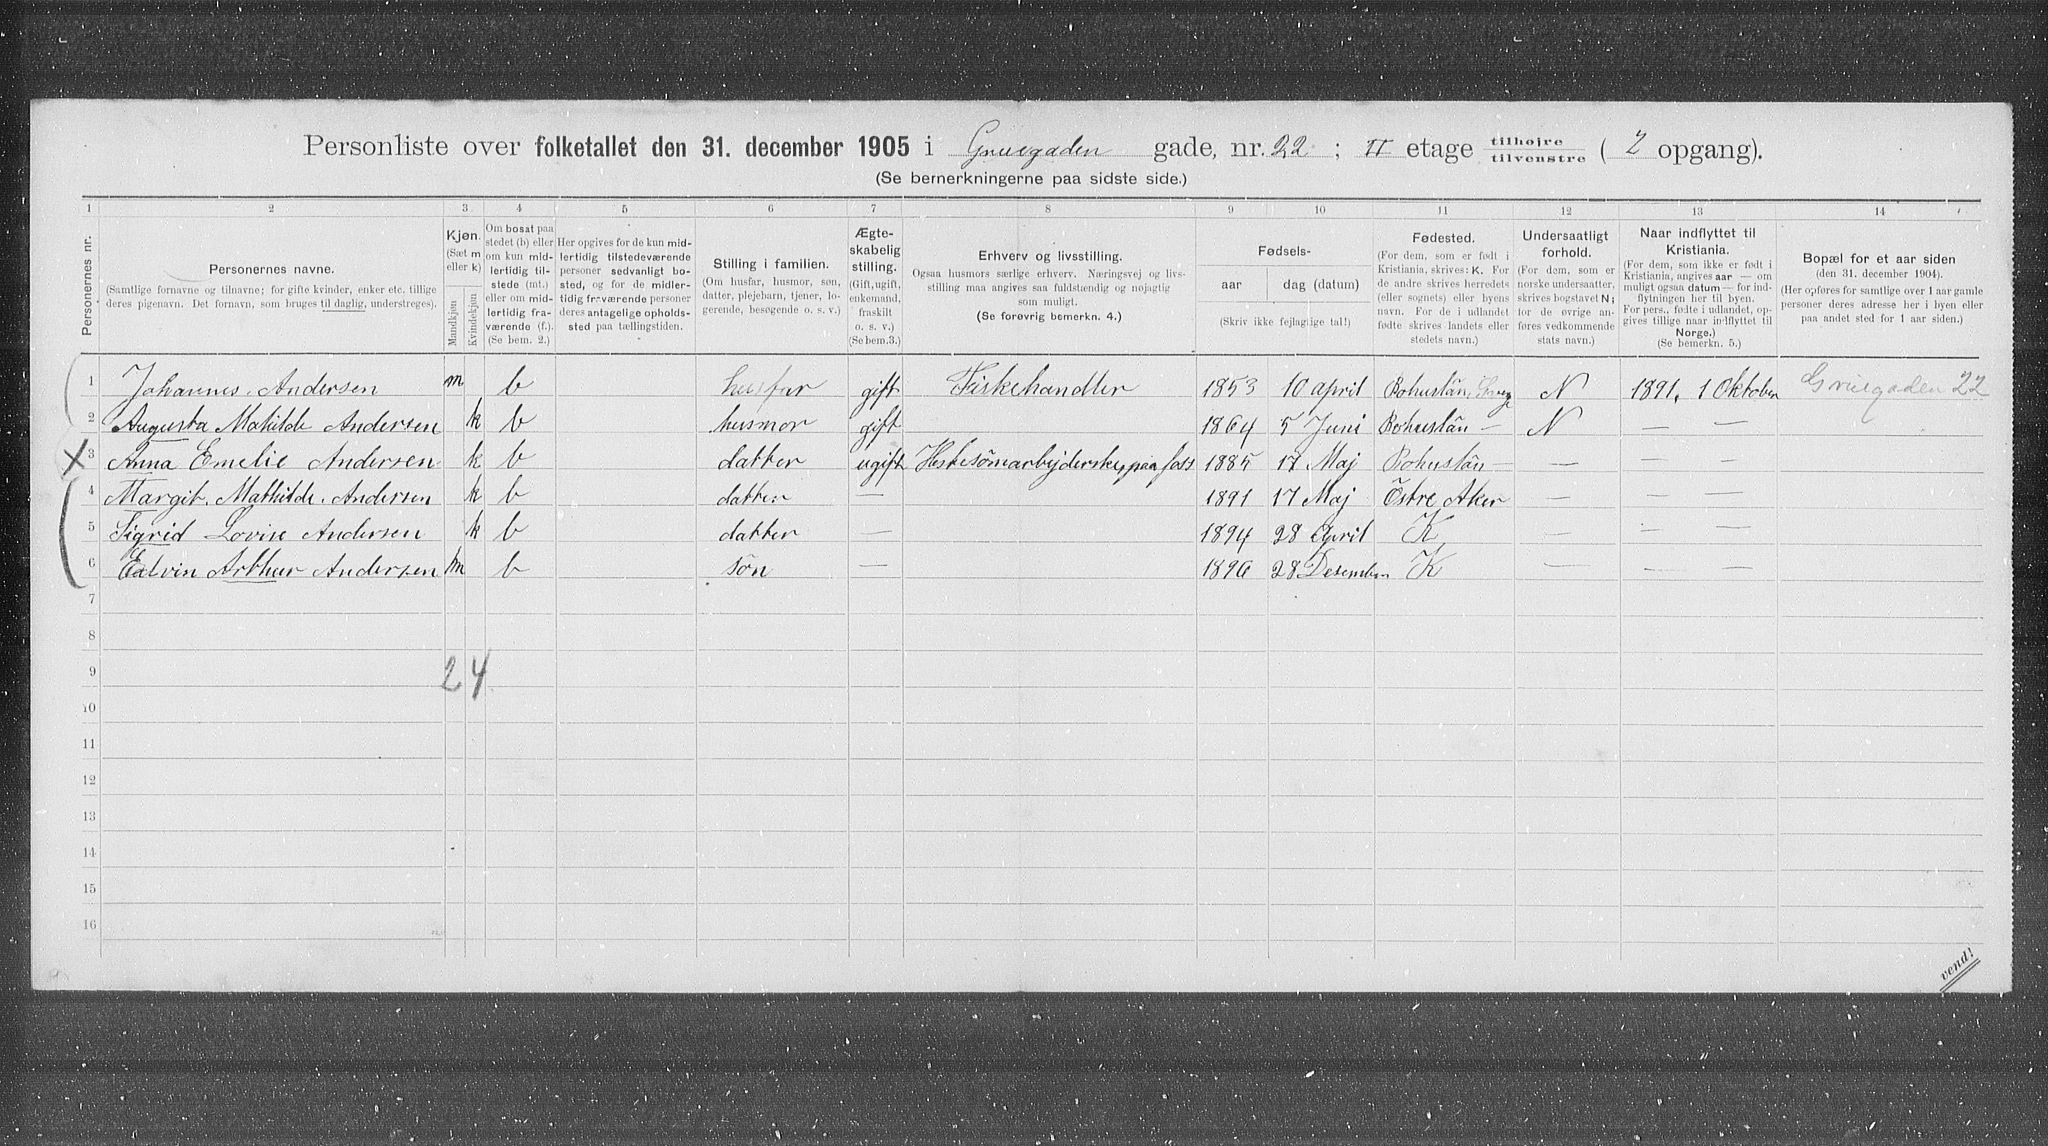 Personliste over folketallet den 31. december 1905 i Gruegaden gade, nr. 22 ; II etage tilhøjre tilvenstre ( 2 opgang).
(Se bemerkningerne paa sidste side.)
1 2 3 4 5 6 7 8 9 10 11 12 13 14
Personernes nr.
Personernes navne.
(Samtlige fornavne og tilnavne; for gifte kvinder, enker etc. tillige deres pigenavn. Det fornavn, som bruges til daglig, understreges).
Kjøn.
(Sæt m eller k)
Mandkjøn
Kvindekjøn
Om bosat paa stedet (b) eller om kun midlertidig tilstede (mt.) eller om midlertidig fraværende (f.). (Se bem. 2.)
Her opgives for de kun midlertidig tilstedeværende personer sedvanligt bosted, og for de midlertidig fraværende personer deres antagelige opholdssted paa tællingstiden.
Stilling i familien.
(Om husfar, husmor, søn, datter, plejebarn, tjener, logerende, besøgende o. s. v.)
Ægteskabelig stilling.
(Gift, ugift, enkemand, fraskilt o. s. v.)
(Se bem.3.)
Erhverv og livsstilling.
Ogsaa husmors særlige erhverv. Næringsvej og livsstilling maa angives saa fuldstændig og nøjagtig som muligt.
(Se forøvrig bemerkn. 4.)
Fødsels-
aar
dag (datum)
(Skriv ikke fejlagtige tal!)
Fødested.
(For dem, som er født i Kristiania, skrives: K. For de andre skrives herredets (eller sognets) eller byens navn. For de i udlandet fødte skrives landets eller stedets navn.)
Undersaatligt forhold.
(For dem, som er norske undersaatter, skrives bogstavet N; for de øvrige anføres vedkommende stats navn.)
Naar indflyttet til Kristiania.
(For dem, som ikke er født i Kristiania, angives aar — om muligt ogsaa datum — for indflytningen her til byen. For pers., fødte i udlandet, opgives tillige naar indflyttet til Norge.)
(Se bemerkn. 5.)
Bopæl for et aar siden
(den 31. december 1904).
(Her opføres for samtlige over 1 aar gamle personer deres adresse her i byen eller paa andet sted for 1 aar siden.)
1 Johannes Andersen m b husfar gift Fiskehandler 1853 10 april Bohuslän, N 1891, 1 Oktober Gruegaden 22
2 Augusta Mathilde Andersen k b husmor gift 1864 5 Juni Bohuslän — N — —
X 3 Anna Emelie Andersen k b datter ugift Heskesömarbejderske, paa foss 1885 17 Maj Bohuslän — — — —
4 Margit. Mathilde. Andersen k b datter — 1891 17 Maj Östre Aker — — —
5 Sigrid Lovise Andersen k b datter — 1894 28 april K — — —
6 Edvin Arthur Andersen m b sön — 1896 28 Desember K — — —
7
8
9
2 4
10
11
12
13
14
15
16
vend!